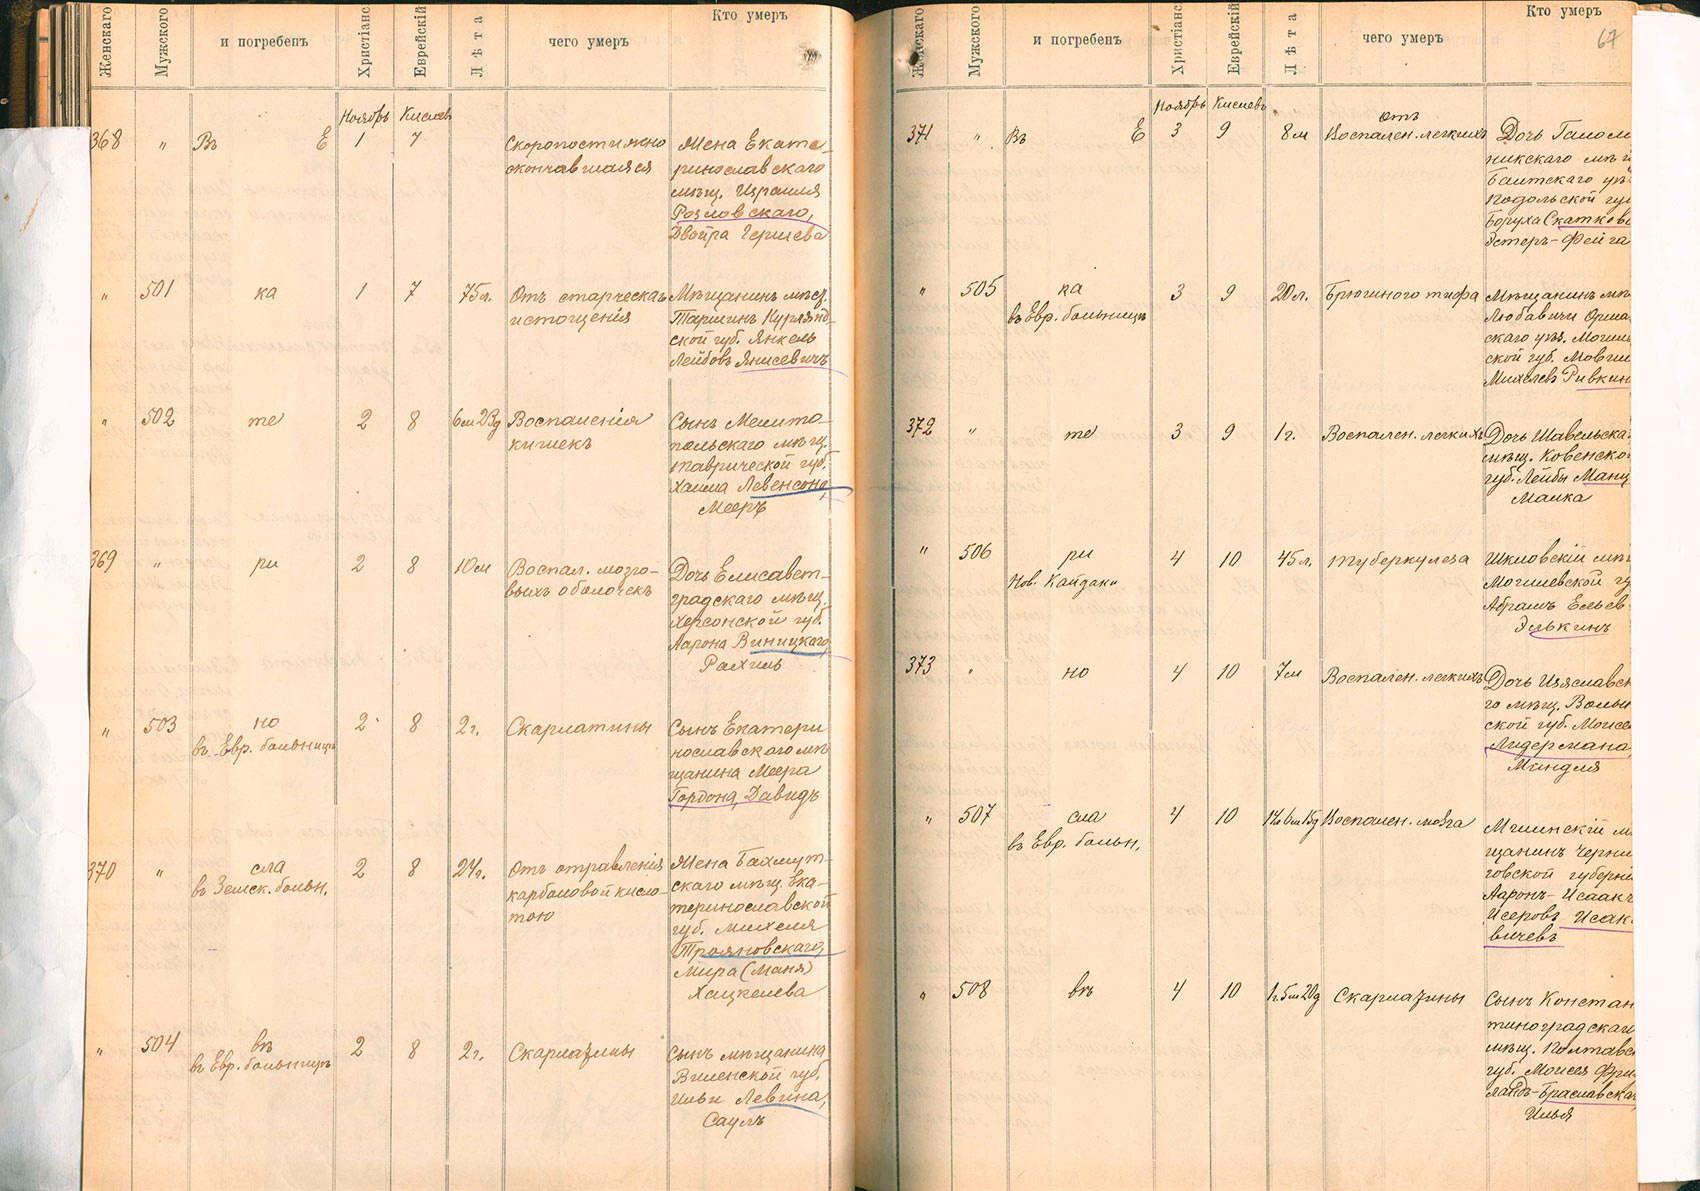 Женскаго
Мужскаго
и погребенъ
Христіанс
Еврейскій
Лѣта
чего умеръ
Кто умеръ
Ноябрь Кислевъ
368 " Въ Е 1 7
Скоропостижно
скончавшаяся
Жена Екате-
ринославскаго
мѣщ. Израиля
Розловскаго,
Двойра Гершева
" 501 ка 1 7 75 л.
Отъ старческаго
истощенія
Мѣщанинъ мѣст.
Курлянд-
ской губ. Янкель
Лейбовъ Янисевичъ
" 502 те 2 8 6 м 23 д
Воспаленія
кишекъ
Сынъ Мелито-
польскаго мѣщ.
Таврической губ.
Хаима Левенсона,
Мееръ
369 " ри 2 8 10 м
Воспал. мозго-
выхъ оболочекъ
Дочь Елисавет-
градскаго мѣщ.
Херсонской губ.
Аарона Виницкаго,
Рахиль
" 503 но 2 8 2 г.
въ Евр. больницѣ
Скарлатины
Сынъ Екатери
нославскаго мѣ
щанина Меера
Гордона, Давидъ
370 " сла 2 8 24 г.
въ Земск. больн.
Отъ отравленія
карболовой кисло-
тою
Жена Бахмут-
скаго мѣщ. Ека-
теринославской
губ. Михеля
Трояновскаго,
Мира (Маня)
Хацкелева
" 504 вѣ 2 8 2 г.
въ Евр. больницѣ
Скарлатины
Сынъ мѣщанина
Виленской губ.
Ильи Левина,
Саулъ
Женскаго
Мужскаго
и погребенъ
Христіанс
Еврейскій
Лѣта
чего умеръ
Кто умеръ
67
Ноябрь Кислевъ
371 " Въ Е 3 9 8 м
отъ
Воспален. легкихъ
Дочь
никскаго мѣщ
Балтскаго уѣ
Подольской гу
Боруха Сатков
Эстеръ-Фейга
" 505 ка 3 9 20 л.
въ Евр. больницѣ
Брюшного тифа
Мѣщанинъ мѣ
Любавичи Орша
скаго уѣз. Могилев
ской губ. Мовши
Михелевъ Ривкин
372 " те 3 9 1 г.
Воспален. легкихъ
Дочь Шавельска
мѣщ. Ковенско
губ. Лейбы Манц
Малка
" 506 ри 4 10 45 л.
Нов. Кайдаки
Туберкулеза
Шкловскій мѣ
Могилевской гу
Абрамъ Ельев
Элькинъ
373 " но 4 10 7 м
Воспален. легкихъ
Дочь Изяславск
го мѣщ. Волын
ской губ. Моисе
Лидермана,
Миндля
" 507 сла 4 10
въ Евр. больн.
Воспален. мозга
Мглинскій м
щанинъ Черни
говской губерн
Ааронъ-Исаакъ
Исеровъ Исак
вичевъ
" 508 вѣ 4 10 1 г. 5 м 20 д
Скарлатины
Сынъ Констан
тиноградскаго
мѣщ. Полтавс
губ. Моисея Фри
ландъ-Браславска
Илья